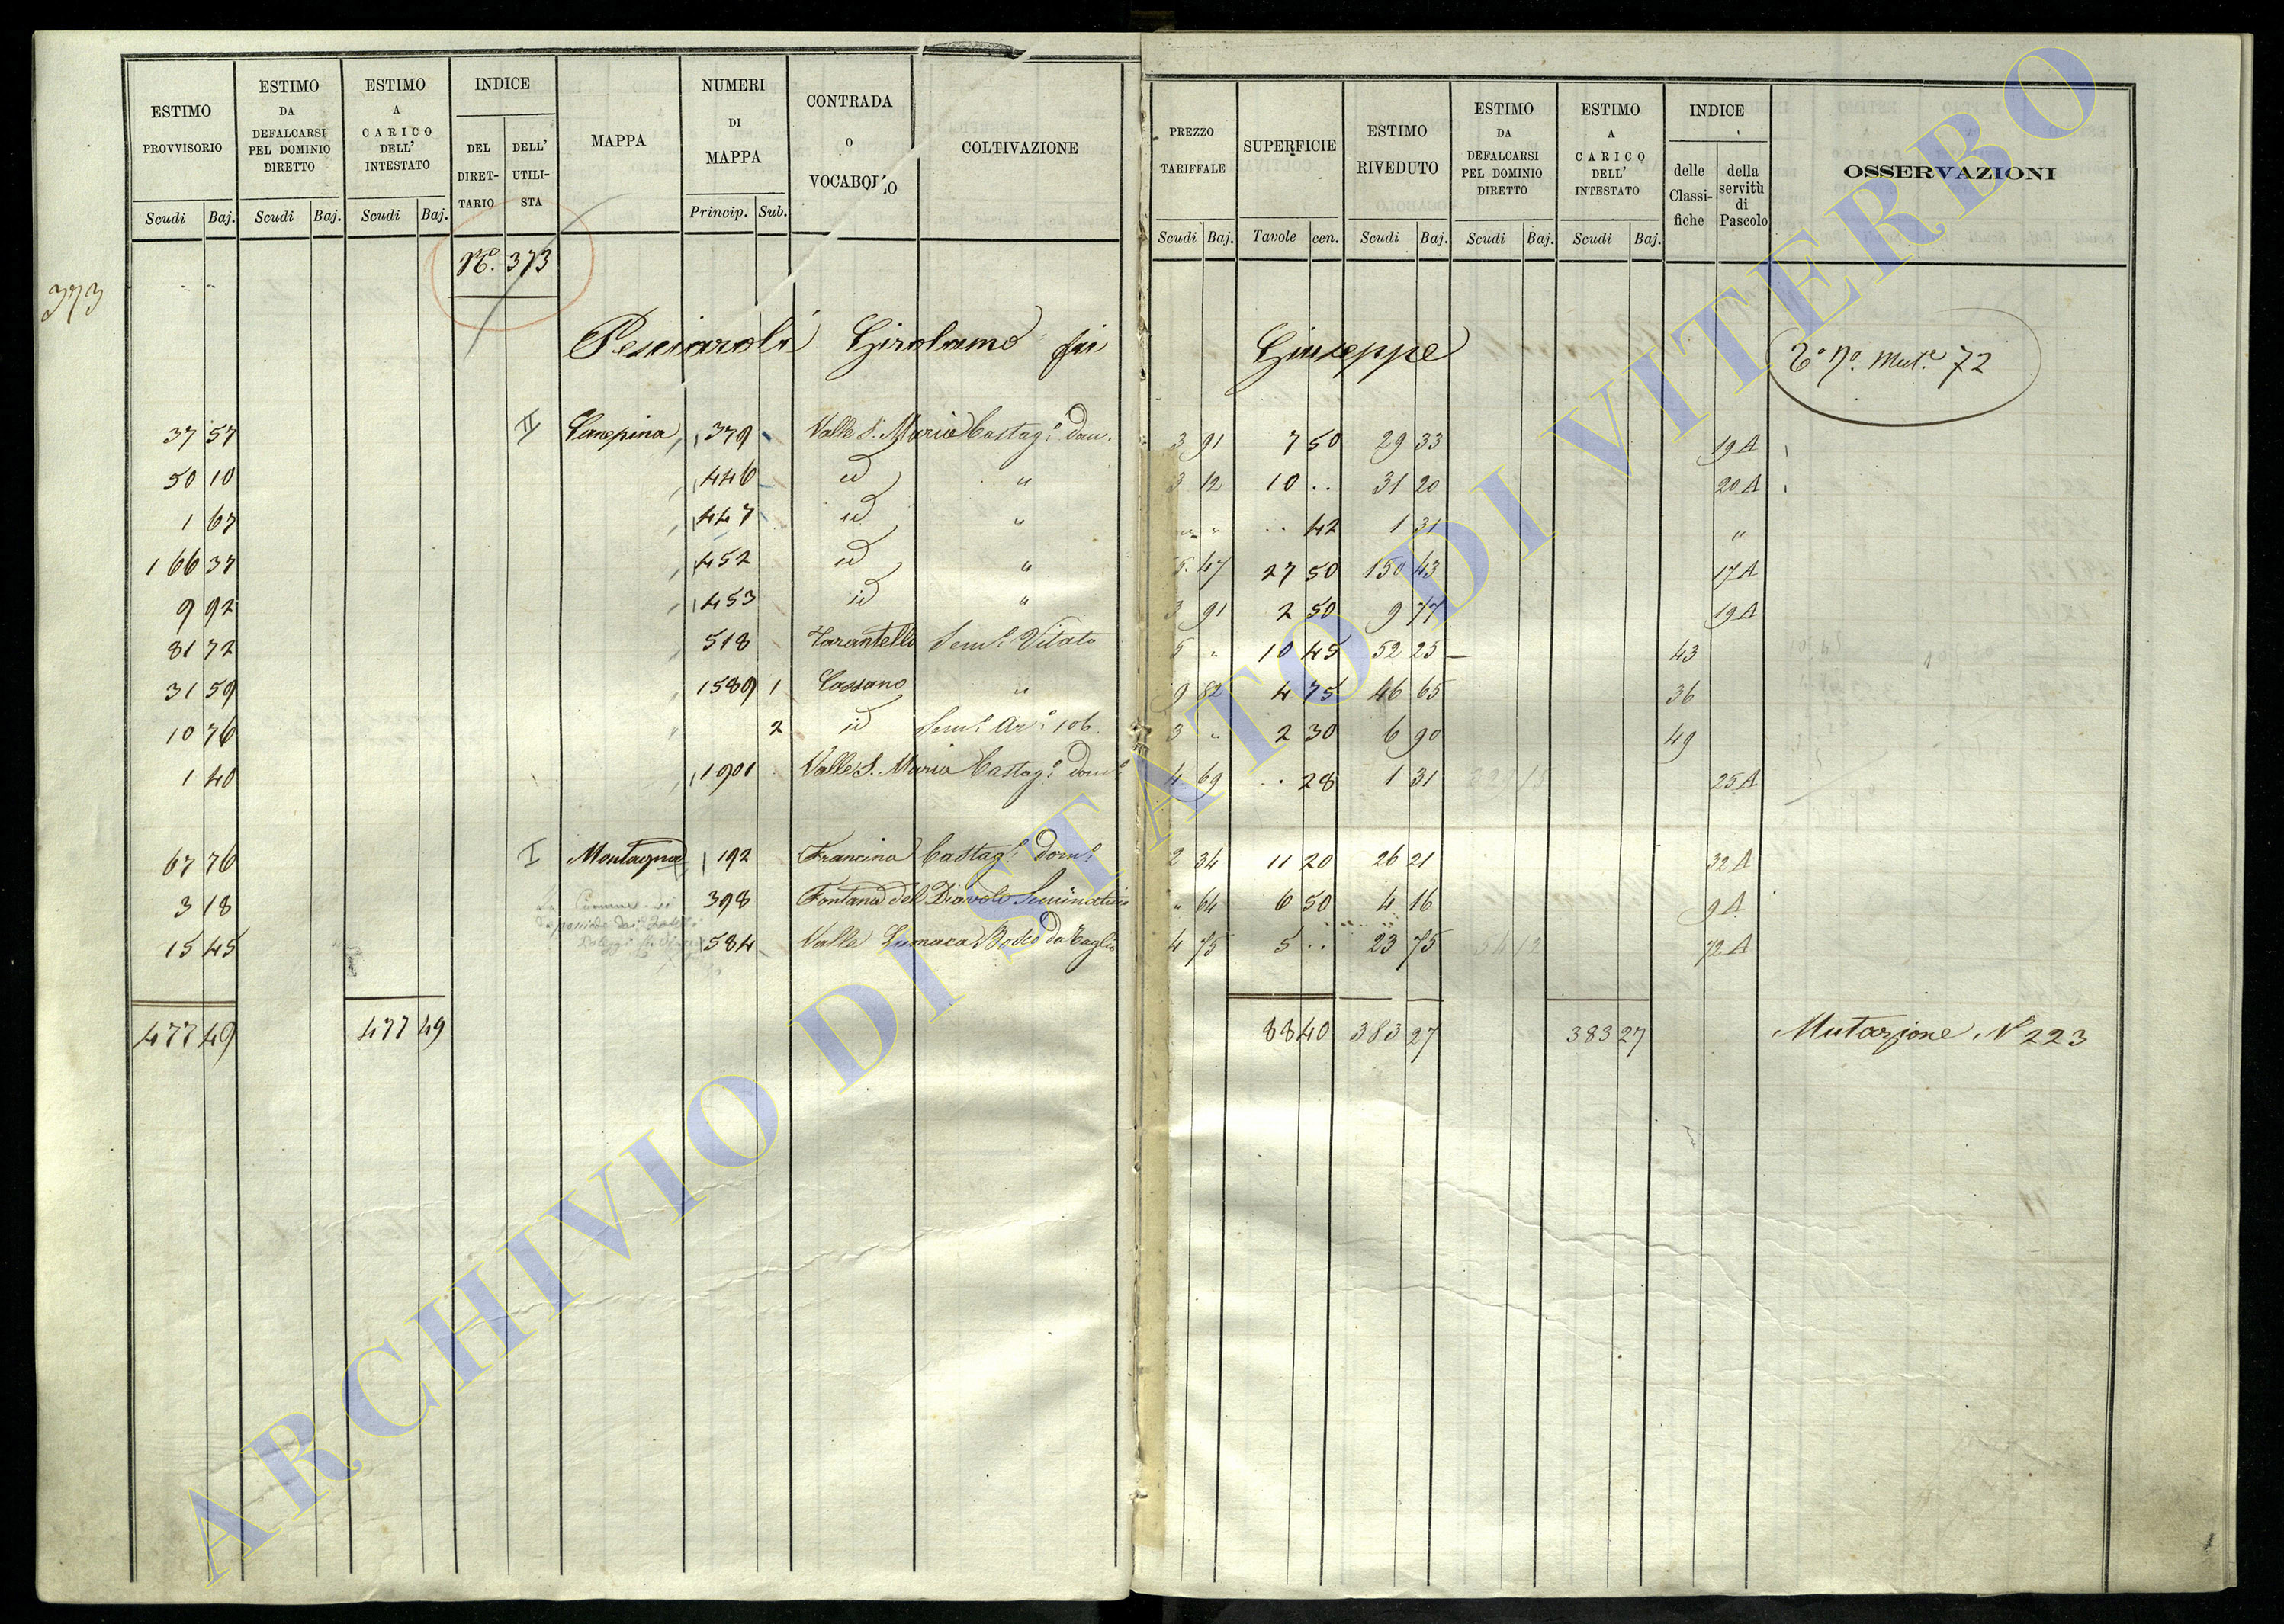 ESTIMO PROVVISORIO Scudi Baj.
ESTIMO DA DEFALCARSI PEL DOMINIO DIRETTO Scudi Baj.
ESTIMO A CARICO DELL' INTESTATO Scudi Baj.
INDICE DEL DIRETTARIO DELL' UTILISTA
MAPPA
NUMERI DI MAPPA Princip. Sub.
CONTRADA O VOCABOLO
COLTIVAZIONE
PREZZO TARIFFALE Scudi Baj.
SUPERFICIE Tavole cen.
ESTIMO RIVEDUTO Scudi Baj.
ESTIMO DA DEFALCARSI PEL DOMINIO DIRETTO Scudi Baj.
ESTIMO A CARICO DELL' INTESTATO Scudi Baj.
INDICE delle Classifiche della servitù di Pascolo
OSSERVAZIONI
373
No. 373
Pesciaroli Girolamo fu Giuseppe
Mut.e 72
37 57 II Canepina 379 Valle S. Maria Castag.o dom. 3 91 7 50 29 33 19 A
50 10 446 id " 3 12 10 .. 31 20 20 A
1 67 447 id " " " .. 42 1 31 "
166 37 452 id " 5 47 27 50 150 43 17 A
9 92 453 id " 3 91 2 50 9 77 19 A
81 72 518 Tarantello Sem.o Vitato 5 " 10 45 52 25 43
31 59 1589 1 Cassano " 9 82 4 75 46 65 36
10 76 " 2 id Sem.o Ar.o 3 " 2 30 6 90 49
1 40 1901 Valle S. Maria Castag.o dom.o 4 69 .. 28 1 31 25 A
67 76 I Montagna 192 Francina Castag.o Dom.o 2 34 11 20 26 21 32 A
3 18 398 Fontana del Diavolo Seminativo " 64 6 50 4 16 9 A
15 45 584 Valle Lumaca Bosco da Taglio 4 75 5 .. 23 75 72 A
477 49 477 49 88 40 383 27 383 27 Mutazione N 223
ARCHIVIO DI STATO DI VITERBO